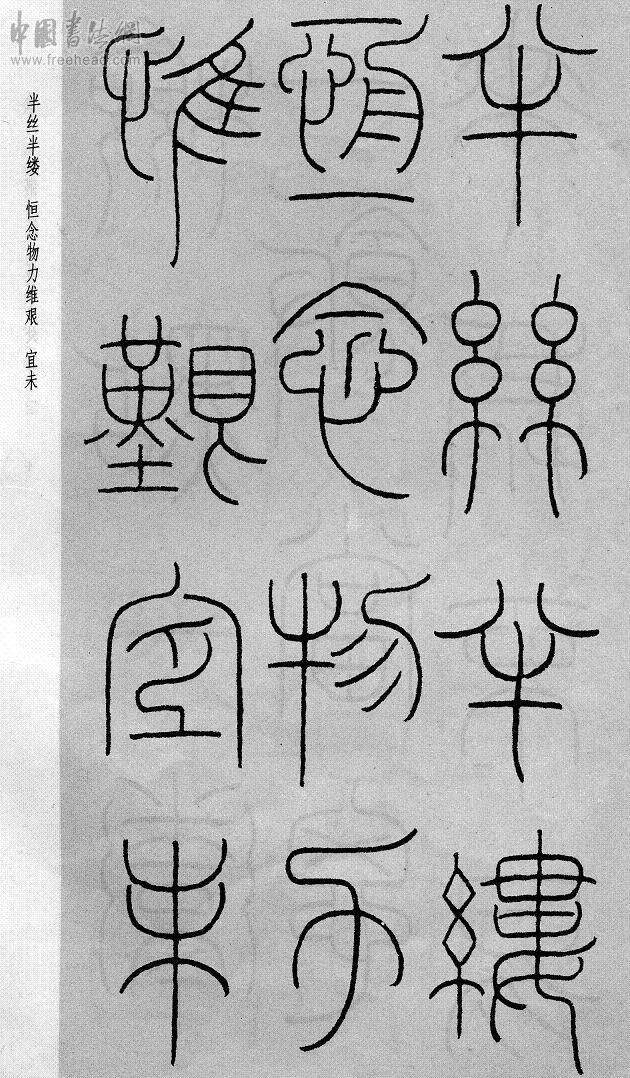 中國書法網
www.freehead.com
半絲半縷
恆念物力
惟艱宜未
半丝半缕 恒念物力维艰 宜未